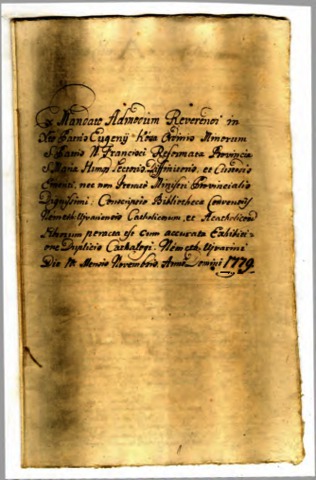 Ex Mandato Admodum Reverendi in
Xto Patris Eugenij Kosa Ordinis Minorum
S. Patris N. Francisci Reformatæ Provinciæ
S. Mariæ Hung. Lectoris, Diffinitoris, et Custodis
Emeriti, nec non Ministri Provincialis
Dignissimi. Conscriptio Bibliothecæ Conventus
Németh-Ujvariensis Catholicorum, et Acatholicorum
Librorum peracta est cum accurata Exhibiti-
one Duplicis Cathalogi. Németh-Ujvarini
Die 14. Mensis Novembris Anno Domini 1779.